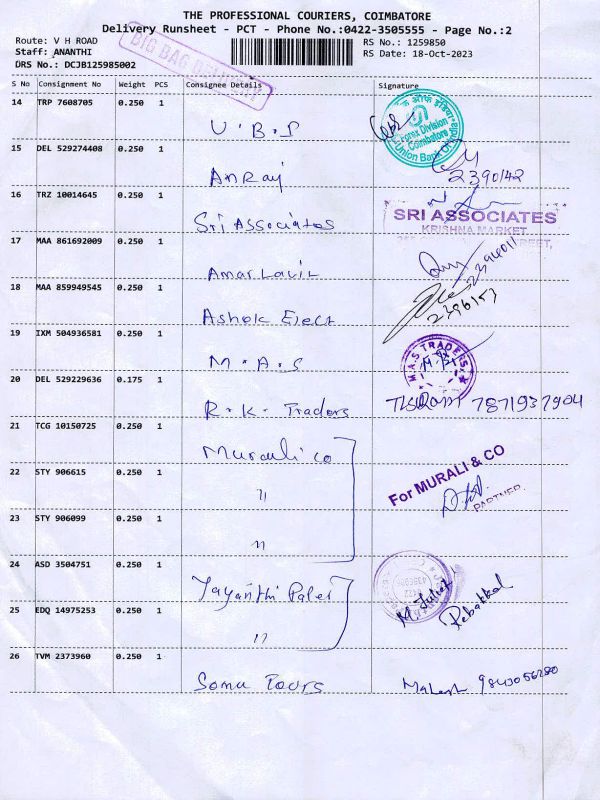 THE PROFESSIONAL COURIERS, COIMBATORE
Delivery Runsheet - PCT - Phone No.:0422-3505555 - Page No.:2
Route: V H ROAD
RS No.: 1259850
Staff: ANANTHI
RS Date: 18-Oct-2023
DRS No.: DCJB125985002
BIG BAG
S No Consignment No Weight PCS Consignee Details Signature
14 TRP 7608705 0.250 1
U.B.I
Forex Division
Coimbatore
Union Bank Of India
15 DEL 529274408 0.250 1
Anraj
2390142
16 TRZ 10014645 0.250 1
Sri Associates
SRI ASSOCIATES
KRISHNA MARKET
STREET,
17 MAA 861692009 0.250 1
Amar
18 MAA 859949545 0.250 1
Ashok Elect
2396157
19 IXM 504936581 0.250 1
M.A.S
M.A.S TRADERS
20 DEL 529229636 0.175 1
R.K. Traders
7871937904
21 TCG 10150725 0.250 1
Murali co
For MURALI & CO
PARTNER
22 STY 906615 0.250 1
"
23 STY 906099 0.250 1
"
24 ASD 3504751 0.250 1
Jayanthi
M. Juliet
25 EDQ 14975253 0.250 1
"
26 TVM 2373960 0.250 1
Somu Tours
Mahesh 9843056280